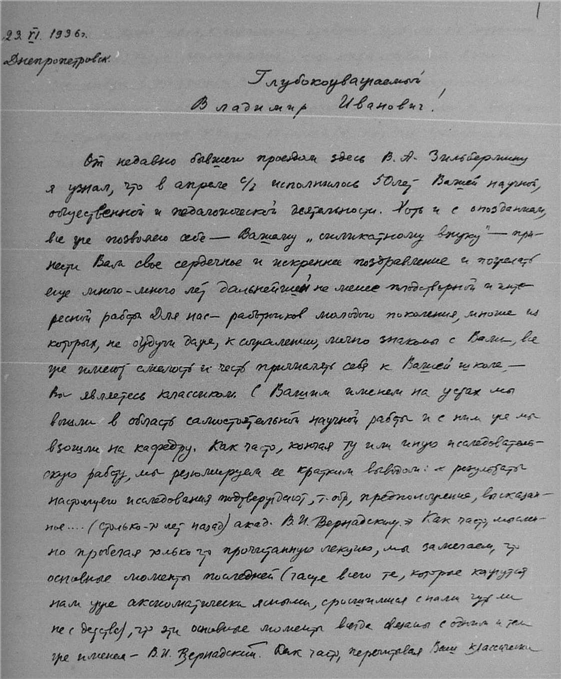 1
23.VI.1936г.
Днепропетровск.
Глубокоуважаемый
Владимир Иванович!
От недавно бывшего проездом здесь В.А. Зильберминца
я узнал, что в апреле с/г исполнилось 50 лет Вашей научной,
общественной и педагогической деятельности. Хоть и с опозданием,
все же позволяю себе — Вашему „силикатному внуку" — при-
нести Вам свое сердечное и искреннее поздравление и пожелать
еще много-много лет дальнейшей не менее плодотворной и инте-
ресной работы. Для нас — работников молодого поколения, многие из
которых, не будучи даже, к сожалению, лично знакомы с Вами, все
же имеют смелость и честь причислять себя к Вашей школе —
Вы являетесь классиком. С Вашим именем на устах мы
вошли в область самостоятельной научной работы и с ним же мы
взошли на кафедру. Как часто, кончая ту или иную исследователь-
скую работу, мы резюмируем ее кратким выводом: « результаты
настоящего исследования подтверждают, т. обр., предположение, высказан-
ное.... (столько-то лет назад) акад. В.И. Вернадским.» Как часто, мыслен-
но пробегая только что прочитанную лекцию, мы замечаем, что
основные моменты последней (чаще всего те, которые кажутся
нам уже аксиоматически ясными, сросшимися с нами чуть ли
не с детства), что эти основные моменты всегда связаны с одним и тем
же именем — В.И. Вернадский. Как часто, перечитывая Ваш классически